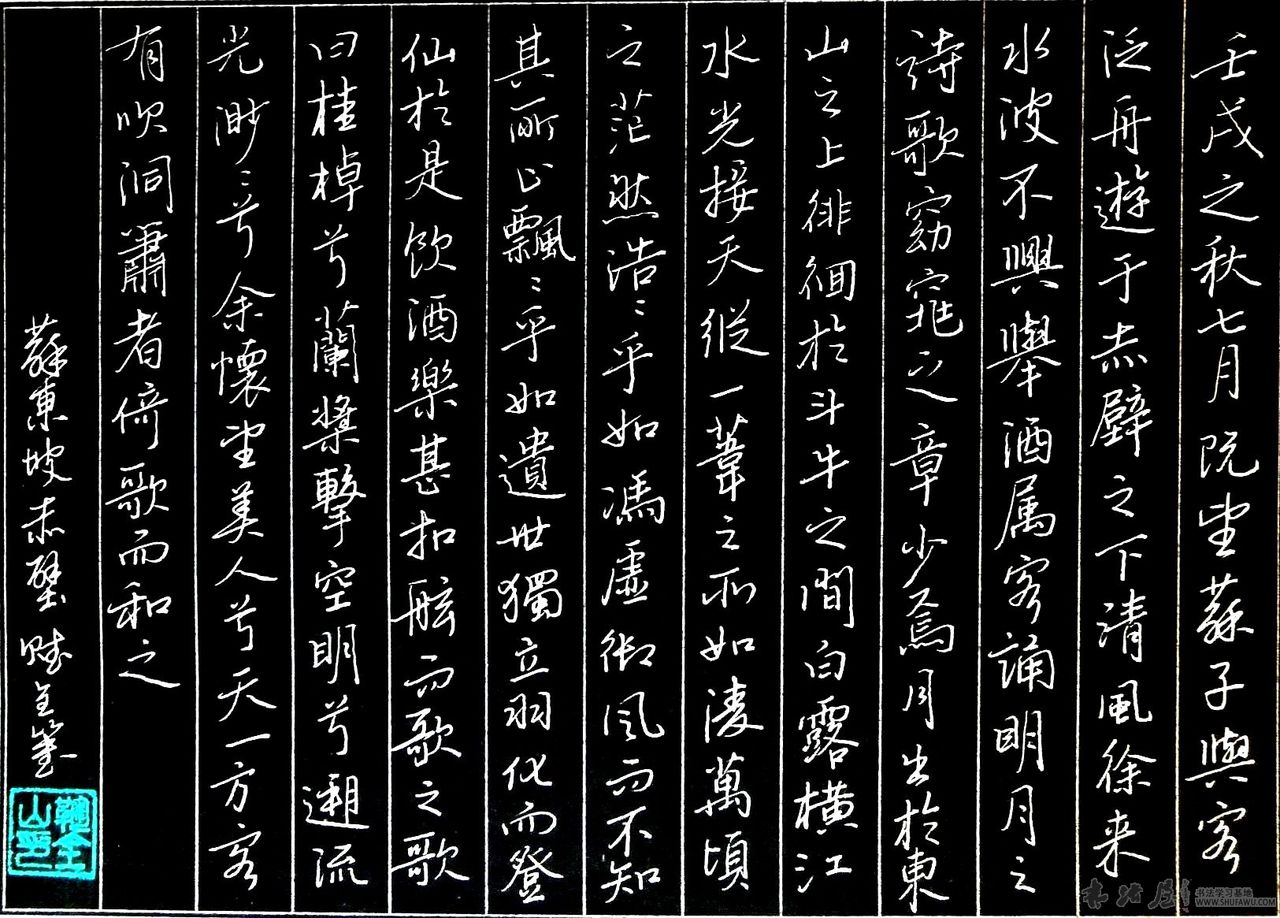 壬戌之秋七月既望蘇子與客
泛舟遊于赤壁之下清風徐来
水波不興舉酒属客誦明月之
詩歌窈窕之章少焉月出於東
山之上徘徊於斗牛之間白露橫江
水光接天縱一葦之所如凌萬頃
之茫然浩〻乎如馮虛御風而不知
其所止飄〻乎如遺世獨立羽化而登
仙於是飲酒樂甚扣舷而歌之歌
曰桂棹兮蘭槳擊空明兮遡流
光渺〻兮余懷望美人兮天一方客
有吹洞簫者倚歌而和之
蘇東坡赤壁賦
书法学习基地
WWW.SHUFAWU.COM